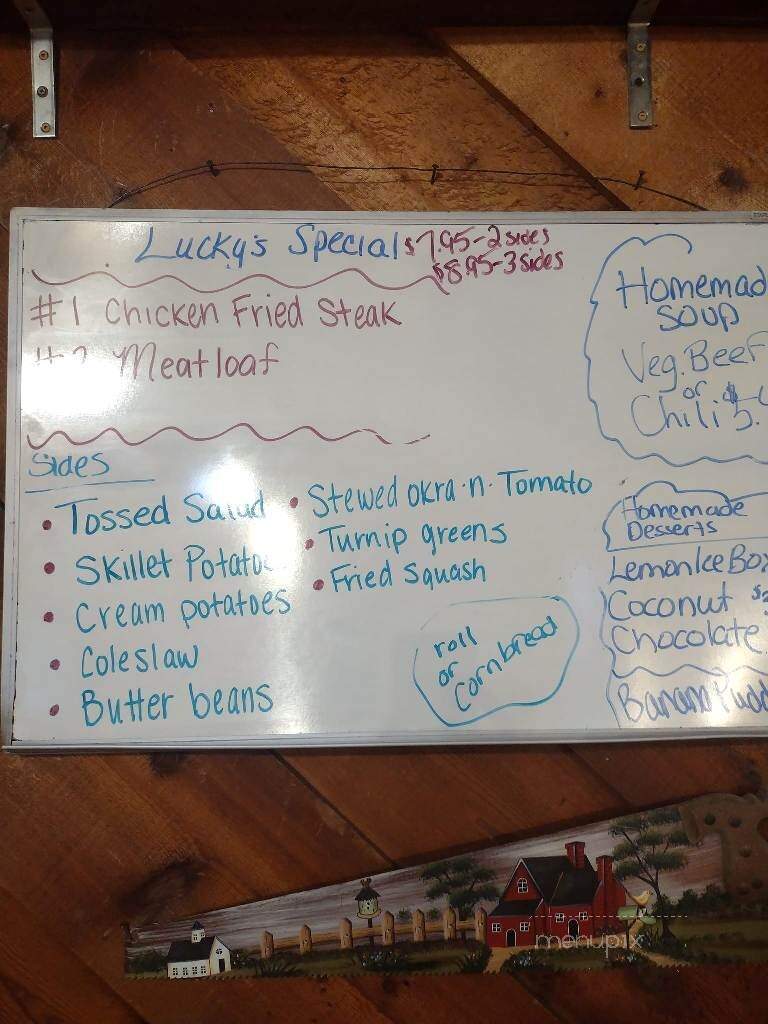 Lucky's Special $7.95-2 sides
$8.95-3 sides
#1 Chicken Fried Steak
#2 Meatloaf
Sides
• Tossed Salad
• Skillet Potatoes
• Cream potatoes
• Coleslaw
• Butter beans
• Stewed okra-n-Tomato
• Turnip greens
• Fried Squash
roll
or
Cornbread
Homemad
Soup
Veg. Beef
or
Chili $
Homemade
Desserts
Lemon Ice Box
Coconut
Chocolate
Banana Pudd
menupix